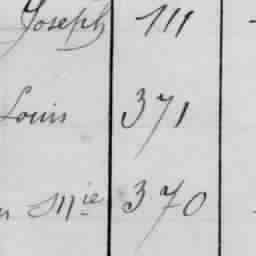 Joseph 111
Louis 371
Mie 370